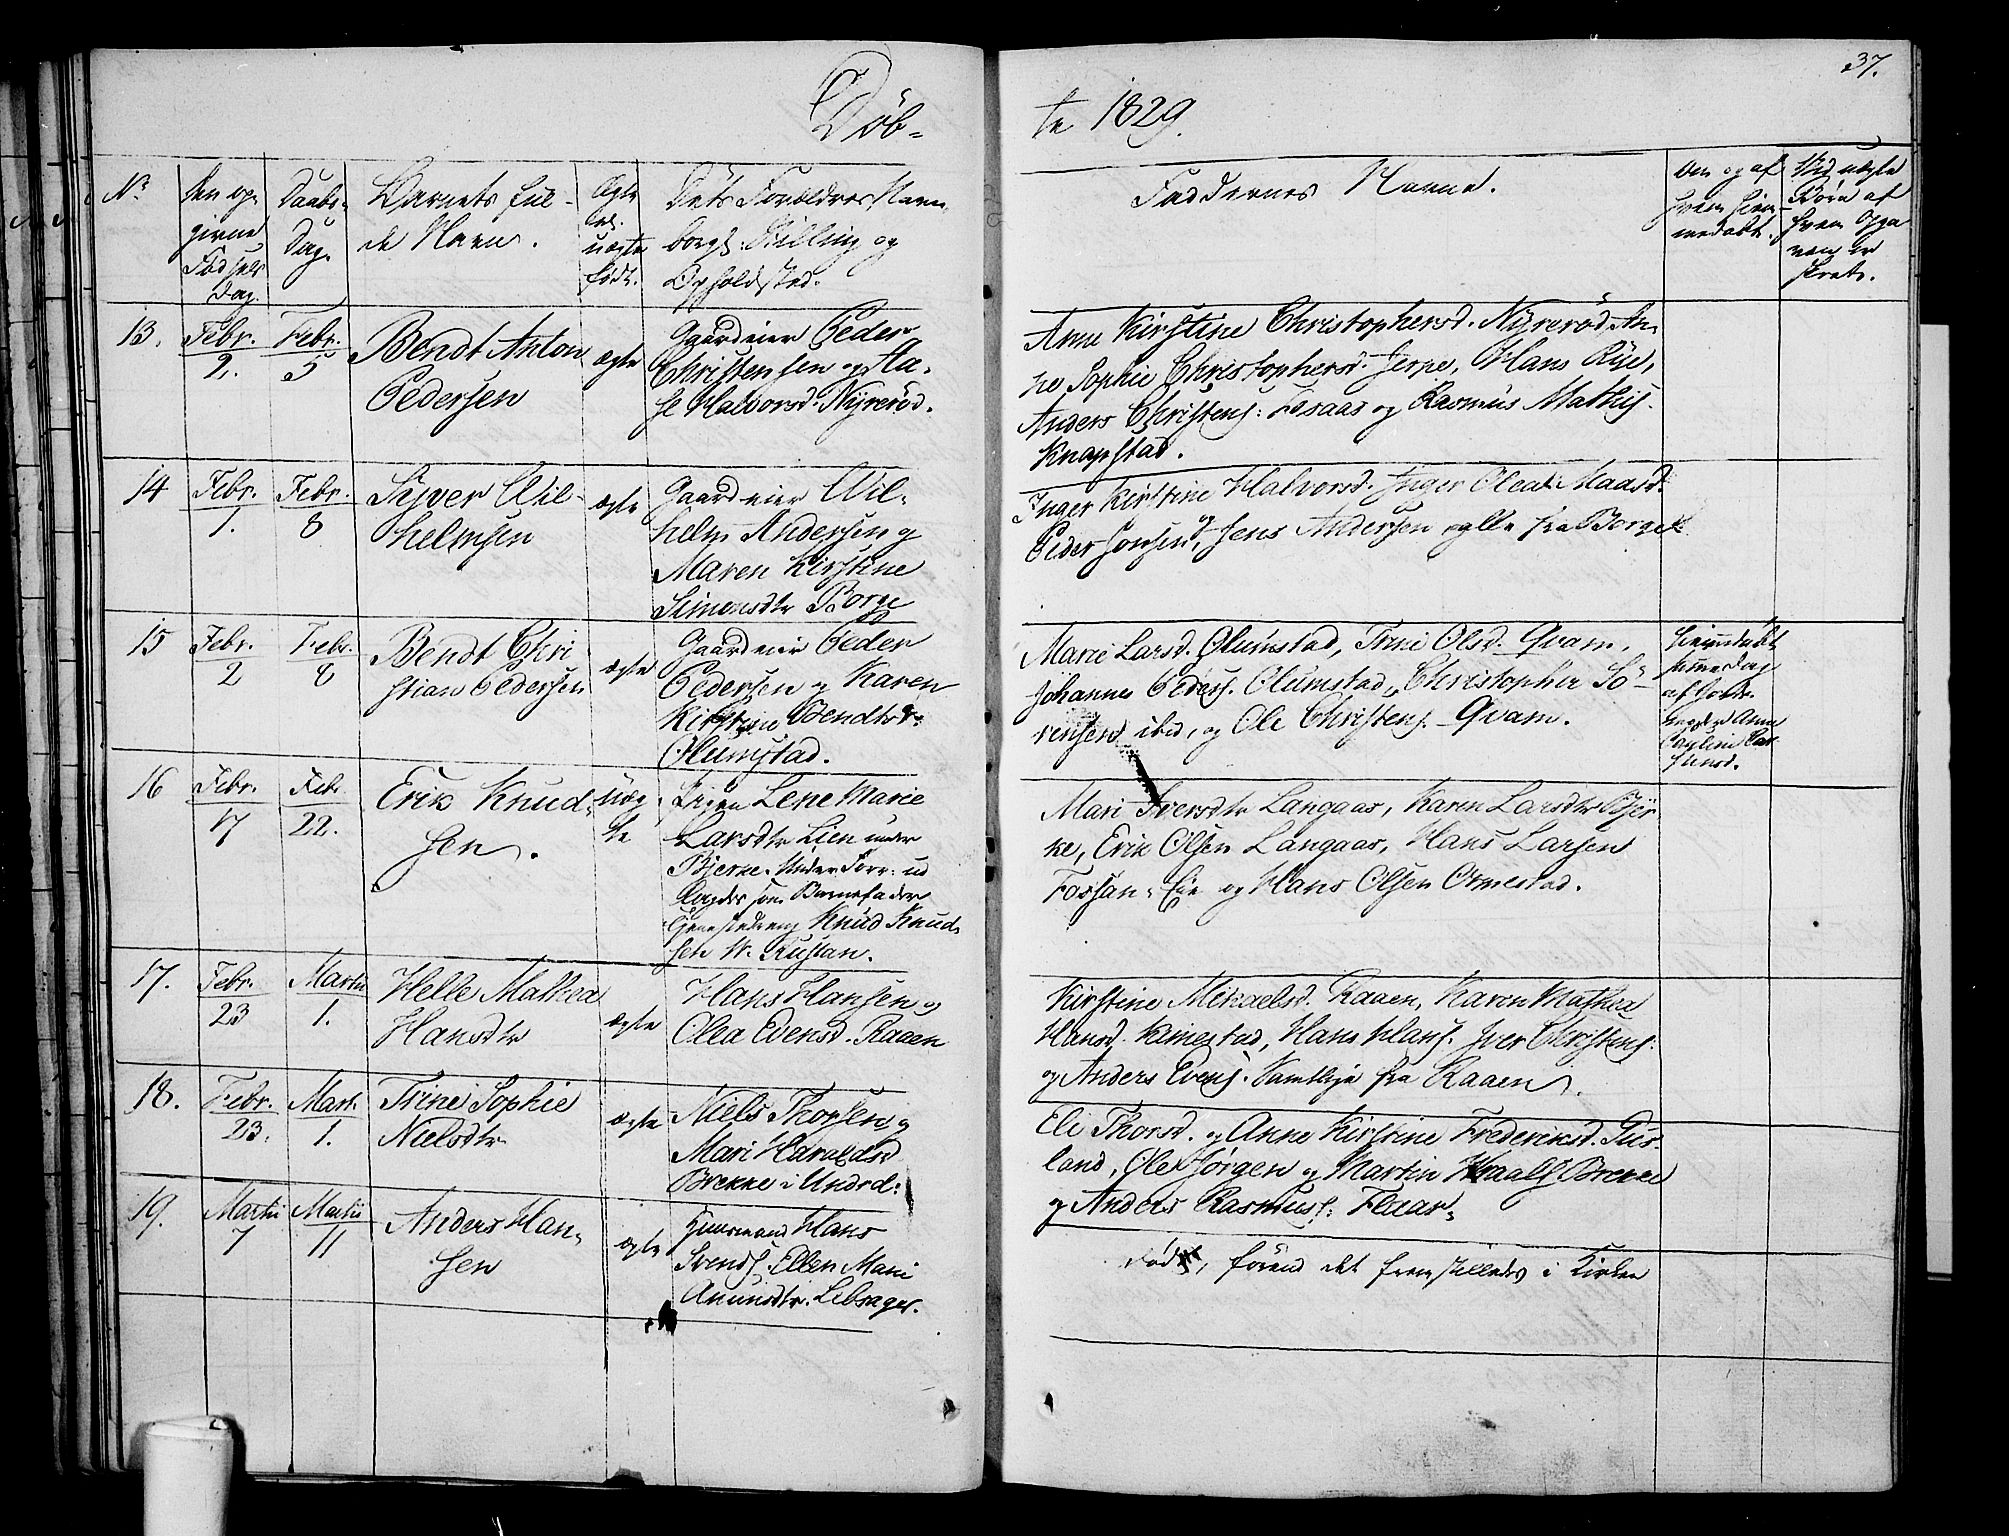 37.
Döb-
te 1829.
No
Den op-
givne
Födsels
Dag.
Daabs-
Dag.
Barnets ful-
de Navn.
Ægte
el.
uægte
födt.
Dets Forældres Navn,
borgl: Stilling og
Opholdsted.
Faddernes Navne.
Om og af
hvem hiem-
medøbt.
Ved uægte
Börn af
hvem Opga
ven er
skeet.
13.
Febr.
2.
Febr.
5
Bendt Anton
Pedersen
ægte
Gaardeier Peder
Christensen og Aa-
se Halvorsd. Nÿrerød.
Anne Kirstine Christophersd. Nÿrerød, An-
ne Sophie Christophersd. Jerpe, Hans Rÿe,
Anders Christens: Fosaas og Rasmus Mathis-
Knapstad.
14
Febr.
1.
Febr.
8
Syver Wil-
helmsen
ægte
Gaardeier Wil-
helm Andersen og
Maren Kirstine
Simensdtr Borge
Inger Kirstine Halvorsd. Inger Olea Maasd.
Peder Jonsen og Jens Andersen alle fra Borge
15
Febr.
2
Febr.
8
Bendt Chri
stian Pedersen
ægte
Gaardeier Peder
Pedersen og Karen
Kirstine Bendtsdr.
Olumstad.
Marie Larsd. Olumstad, Trine Olsd. Qvam,
Johannes Peders. Olumstad, Christopher Sö-
rensen ibid, og Ole Christens. Qvam.
hiemmedøbt
samme dag
af Jorde-
Anne
16
Febr.
17
Febr.
22.
Erik Knud-
sen.
uæg
te
Pigen Lene Marie
Larsdtr Lien under
Bjerke. Under Forr: ud
lagdes som Barnefader
Knud Knud-
sen W. Rustan.
Mari Iversdtr Langaas, Karen Larsdtr Bjer
ke, Erik Olsen Langaas, Hans Larsen
Fossan-Eie og Hans Olsen Ormestad.
17.
Febr.
23
Martii
1.
Helle Mathea
Hansdtr
ægte
Hans Hansen og
Olea Evensd. Raaen
Kirstine Mikaelsd. Raaen, Karen Mathea
Hansd. Kimestad, Hans Hans. Iver Christens:
og Anders Evens. Samtlige fra Raaen.
18.
Febr.
23.
Mart.
1.
Trine Sophie
Nielsdtr
ægte
Niels Thorsen og
Mari Haraldsd
Brekke i Undrd:
Eli Thorsd. og Anne Kirstine Frederiksd. Rus-
land, Ole Jörgen og Martin Haralds. Brekke
og Anders Rasmus: Flaar.
19.
Martii
7
Martii
11
Anders Han-
sen
ægte
Huusmand Hans
Svends. Ellen Mari
Amundsdtr. Lebsager.
Död, förend det fremstilledes i Kirken